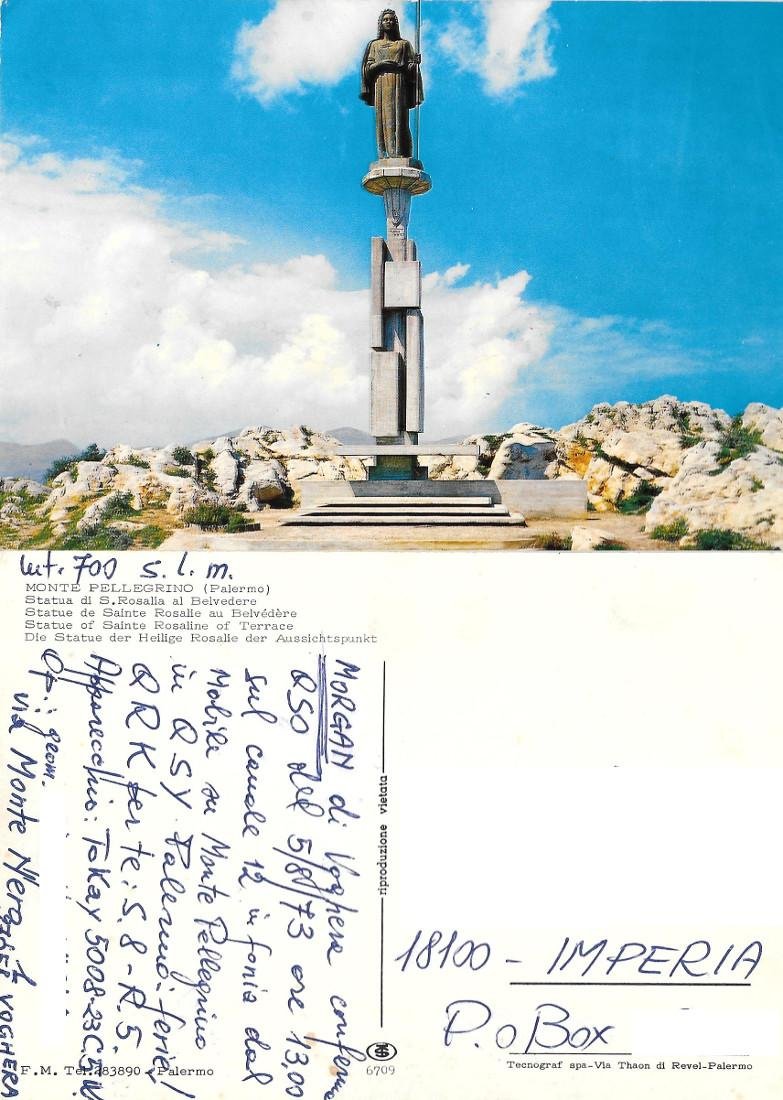 700 s.l.m.
MONTE PELLEGRINO (Palermo)
Statua di S.Rosalia al Belvedere
Statue de Sainte Rosalie au Belvédère
Statue of Sainte Rosaline of Terrace
Die Statue der Heilige Rosalie der Aussichtspunkt
MORGAN di Voghera conferma
QSO del 5/8/73 ore 13,00
sul canale 12 in fonia dal
Mobile su Monte Pellegrino
in QSY Palermo: ferie!
QRK per te: S. 8 - R. 5.
Apparecchio: ToKay 5008-23C.5W.
Op.: geom.
via Monte Nero,
VOGHERA
riproduzione vietata
18100 - IMPERIA
P.o Box
F.M. Tel. 283890 - Palermo
6709
Tecnograf spa-Via Thaon di Revel-Palermo